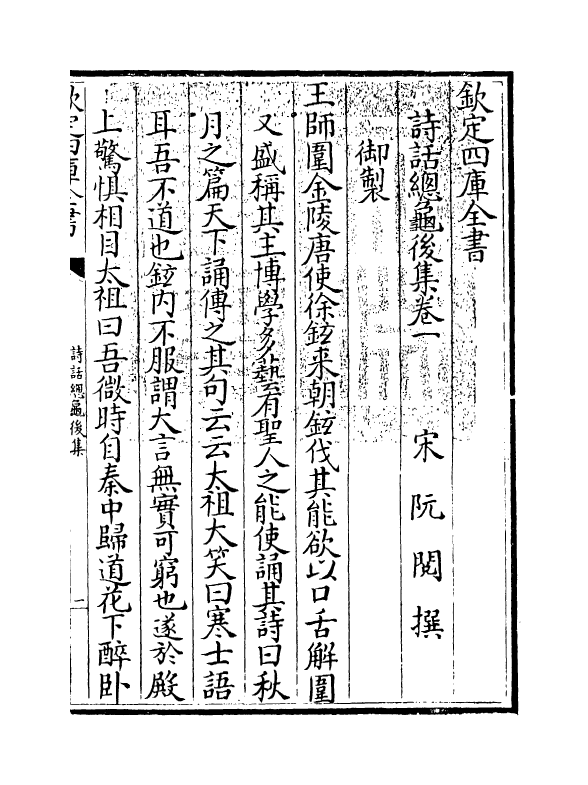 欽定四庫全書
詩話總龜後集卷一　　宋　阮　閱　撰
御製
王師圍金陵唐使徐鉉来朝鉉伐其能欲以口舌解圍
又盛稱其主博學多藝有聖人之能使誦其詩曰秋
月之篇天下誦傳之其句云云太祖大笑曰寒士語
耳吾不道也鉉内不服謂大言無實可窮也遂於殿
上驚惧相目太祖曰吾微時自秦中歸道花下醉卧
欽定四庫全書
詩話總龜後集
一